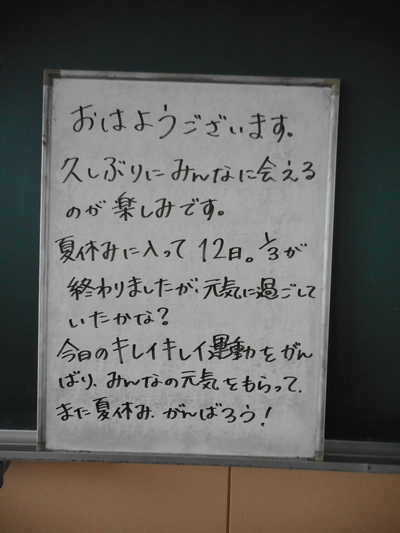 おはようございます。
久しぶりにみんなに会える
のが楽しみです。
夏休みに入って12日。1/3が
終わりましたが、元気に過ごして
いたかな?
今日のキレイキレイ運動をがん
ばり、みんなの元気をもらって、
また夏休み、がんばろう!